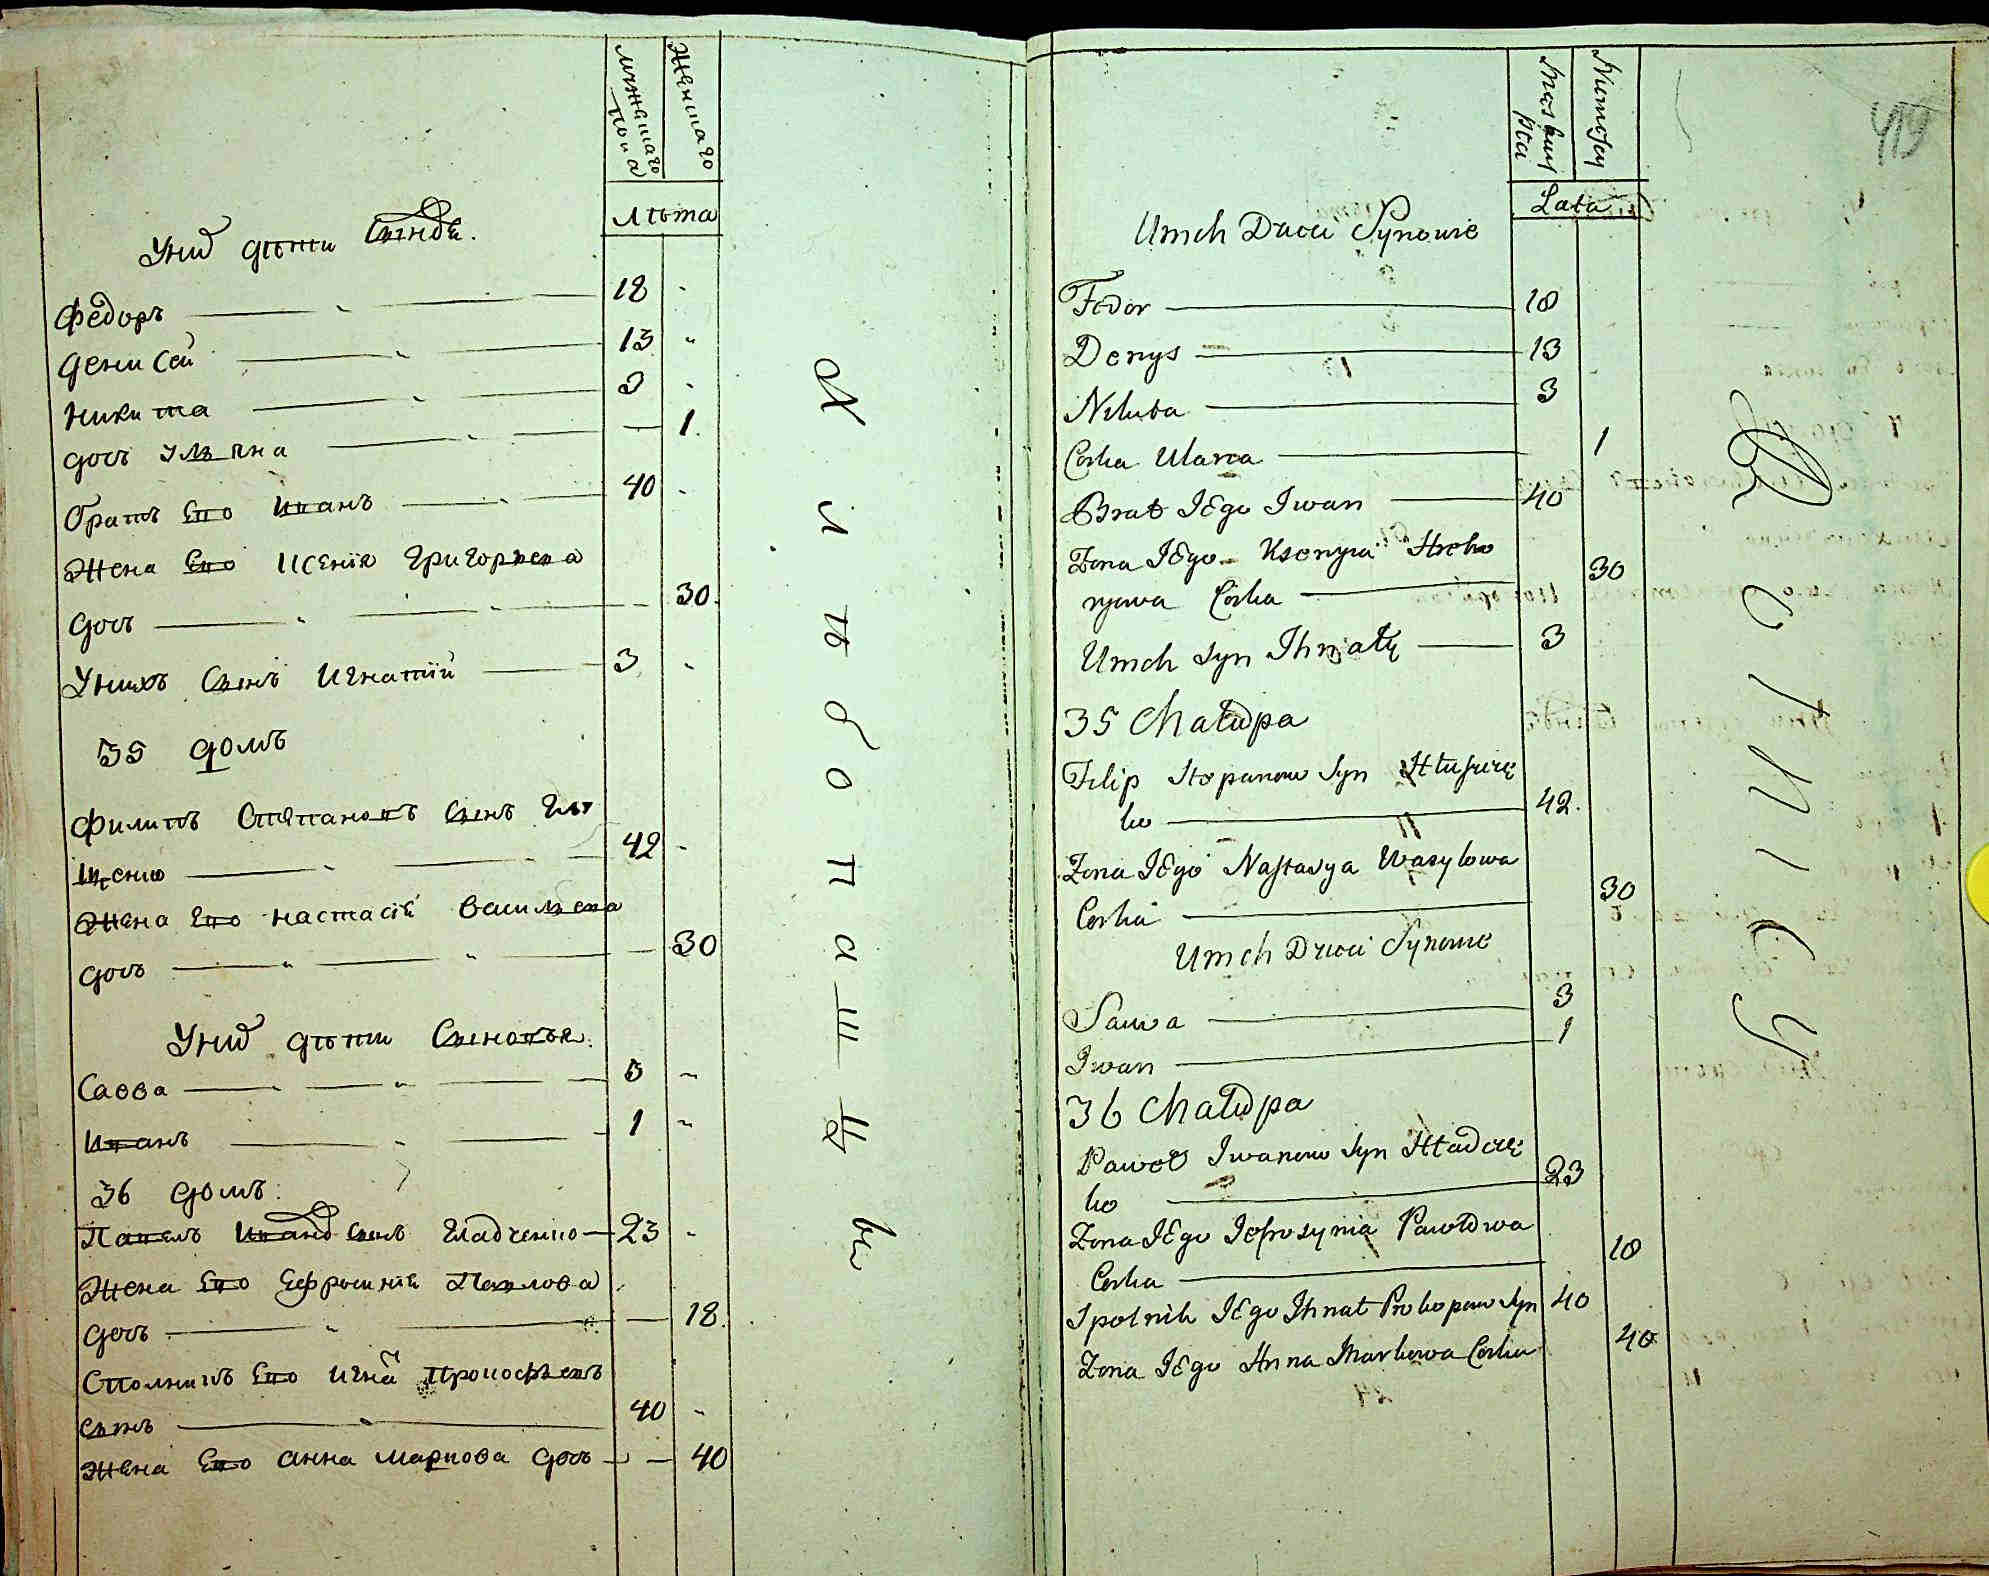 мужескаго
пола
женскаго
лѣта
Уних дѣти Сынове.
Федоръ 18
Денисей 13
Никита 3
дочь Ульяна 1
братъ Его Иванъ 40
Жена Его Ксенія Григорьева
дочь 30
Унихъ Сынъ Игнатій 3
35 домъ
Филипъ Степановъ Сынъ Глу
щенко 42
Жена Его Настасія Васильева
дочь 30
Уних дѣти Сыновья.
Савва 3
Иванъ 1
36 домъ
Павелъ Иванов Сынъ Гладченко 23
Жена Его Ефросинія Павлова
дочь 18
Сполникъ Его Игна Прокофьевъ
Сынъ 40
Жена Его Анна Маркова дочь 40
Хлѣбопашцы
419
Maskuy
płci
Niewiesciey
Lata
Unich Dzieci Synowie
Fedor 18
Denys 13
Nikita 3
Corka Ulana 1
Brat IEgo Iwan 40
Zona IEgo Ksenyia Hreho
ryowa Corka 30
Unich Syn Ihnaty 3
35 Chałupa
Filip Stepanow Syn Hłuszcze
ko 42.
Zona IEgo Nastasya Wasylowa
Corka 30
Unich Dzieci Synowie
Sawa 3
Iwan 1
36 Chałupa
Paweł Iwanow Syn Hładcze
ko 23
Zona IEgo Jefrosynia Pawłowa
Corka 18
Spolnik IEgo Ihnat Prokopow Syn 40
Zona IEgo Anna Markowa Corka 40
Rolnicy